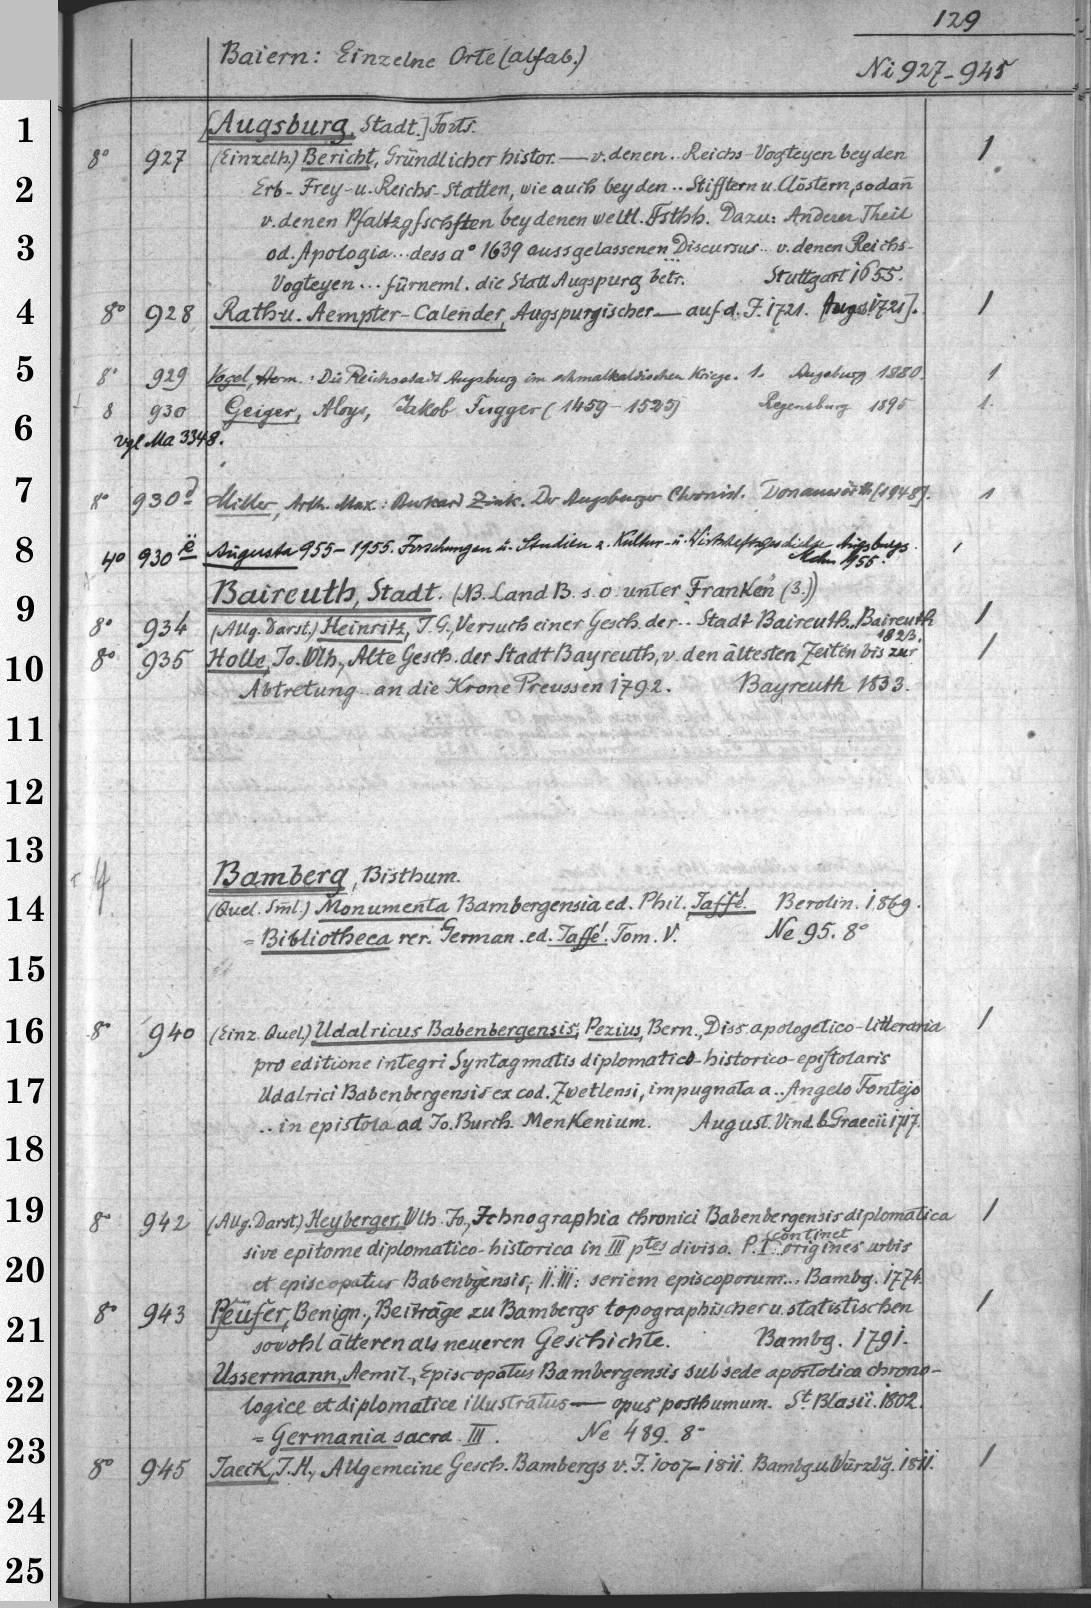 129
Baiern: Einzelne Orte (alfab.)
Ni 927-945
1
[Augsburg, Stadt.] Forts.
8° 927 (Einzelh.) Bericht, Gründlicher histor. — v. denen .. Reichs-Vogteyen bey den 1
2
Erb- Frey- u. Reichs-Stätten, wie auch bey den .. Stifftern u. Clöstern, sodañ
v. denen Pfaltzgfschften bey denen weltl. Fsthh. Dazu: Anderer Theil
3
od. Apologia ... dess a° 1639 aussgelassenen Discursus .. v. denen Reichs-
Vogteyen ... fürneml. die Statt Augspurg betr. ... Stuttgart 1655.
4
8° 928 Rath u. Aempter-Calender, Augspurgischer — auf d. J. 1721. [Augsb 1721]. 1
5
8° 929 Vogel, Herm.: Die Reichsstadt Augsburg im schmalkaldischen Kriege. 1. Augsburg 1880. 1
8 930 Geiger, Aloys, Jakob Fugger (1459-1525) Regensburg 1895 1.
6
vgl Ma 3348.
7
8° 930 d Miller, Arth. Max.: Burkard Zink. Der Augsburger Chronist. Donauwörth [1948]. 1
8
4° 930 e Augusta 955-1955. Forschungen u. Studien z. Kultur- u. Wirtschaftsgeschichte Augsburgs. 1
Mchn 1955.
9
Baireuth, Stadt. (NB. Land B. s. o. unter Franken (3.))
8° 934 (Allg. Darst.) Heinritz, J. G., Versuch einer Gesch. der .. Stadt Baireuth .. Baireuth 1
1823.
10
8° 935 Holle, Jo. Wlh., Alte Gesch. der Stadt Bayreuth, v. den ältesten Zeiten bis zur 1
Abtretung .. an die Krone Preussen 1792. Bayreuth 1833.
11
12
13
Bamberg, Bisthum.
14
(Quel. Sml.) Monumenta Bambergensia ed. Phil. Jaffé. Berolin. 1869.
= Bibliotheca rer. German. ed. Jaffé. Tom. V. Ne 95. 8°
15
16
8° 940 (Einz. Quel.) Udalricus Babenbergensis, Pezius, Bern., Diss. apologetico-litteraria 1
pro editione integri Syntagmatis diplomatico-historico-epistolaris
17
Udalrici Babenbergensis ex cod. Zwetlensi, impugnata a .. Angelo Fontejo
.. in epistola ad Jo. Burch. Menkenium. August. Vind. & Graecii 1717.
18
19
8° 942 (Allg. Darst.) Heyberger, Wlh. Jo., Ichnographia chronici Babenbergensis diplomatica 1
sive epitome diplomatico-historica in III ptes divisa. P. I. continet origines urbis
20
et episcopatus Babenbgensis, II. III: seriem episcoporum ... Bambg. 1774.
8° 943 Pfeufer, Benign., Beiträge zu Bambergs topographischer u. statistischen 1
21
sowohl älteren als neueren Geschichte. Bambg. 1791.
Ussermann, Aemil., Episcopatus Bambergensis sub sede apostolica chrono-
22
logice et diplomatice illustratus — opus posthumum. St. Blasii. 1802.
= Germania sacra III. Ne 489. 8°
23
8° 945 Jaeck, J. H., Allgemeine Gesch. Bambergs v. J. 1007-1811. Bambg. u. Würzbg. 1811. 1
24
25